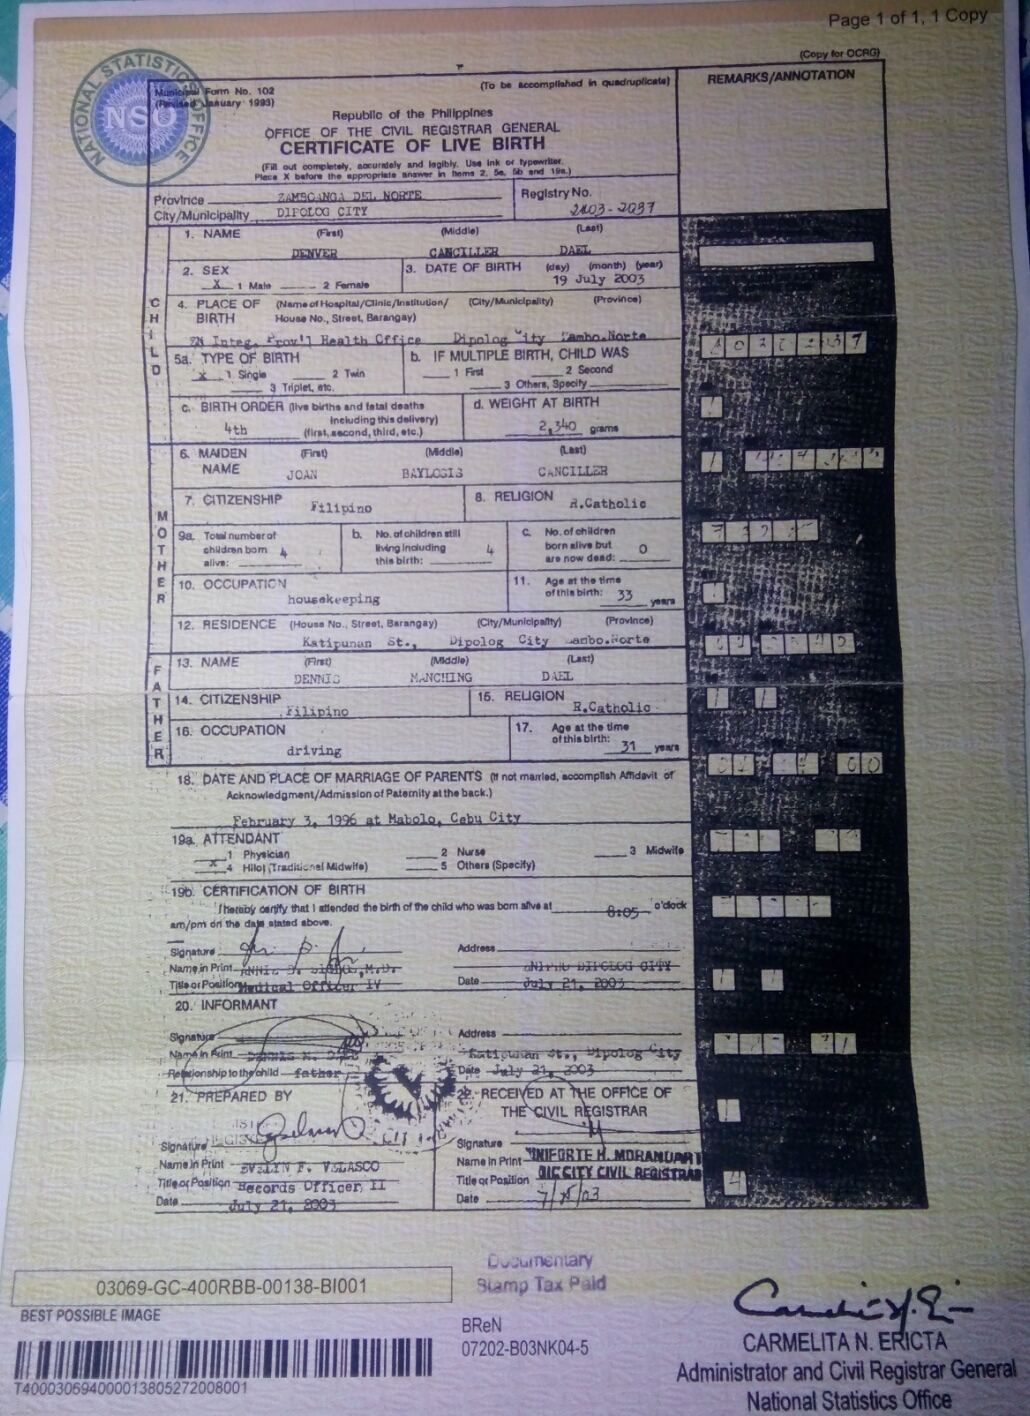 Page 1 of 1, 1 Copy
(Copy for OCRG)
NATIONAL STATISTICS OFFICE
NSO
Municipal Form No. 102
(Revised January 1993)
(To be accomplished in quadruplicate)
REMARKS/ANNOTATION
Republic of the Philippines
OFFICE OF THE CIVIL REGISTRAR GENERAL
CERTIFICATE OF LIVE BIRTH
(Fill out completely, accurately and legibly. Use ink or typewriter.
Place X before the appropriate answer in Items 2, 5a, 5b and 19a.)
Province ZAMBOANGA DEL NORTE
Registry No.
City/Municipality DIPOLOG CITY
2003-2037
CHILD
1. NAME (First) (Middle) (Last)
DENVER CANCILLER DAEL
2. SEX
X 1 Male 2 Female
3. DATE OF BIRTH (day) (month) (year)
19 July 2003
4. PLACE OF BIRTH (Name of Hospital/Clinic/Institution/ (City/Municipality) (Province)
House No., Street, Barangay)
ZN Integ. Prov'l Health Office Dipolog City Zambo.Norte
5a. TYPE OF BIRTH
b. IF MULTIPLE BIRTH, CHILD WAS
X 1 Single 2 Twin
1 First 2 Second
3 Triplet, etc.
3 Others, Specify
c. BIRTH ORDER (live births and fetal deaths
including this delivery)
4th (first, second, third, etc.)
d. WEIGHT AT BIRTH
2,340 grams
MOTHER
6. MAIDEN NAME (First) (Middle) (Last)
JOAN BAYLOSIS CANCILLER
7. CITIZENSHIP Filipino
8. RELIGION R.Catholic
9a. Total number of
children born
alive: 4
b. No. of children still
living including
this birth: 4
c. No. of children
born alive but
are now dead: 0
10. OCCUPATION
housekeeping
11. Age at the time
of this birth: 33 years
12. RESIDENCE (House No., Street, Barangay) (City/Municipality) (Province)
Katipunan St., Dipolog City Zambo.Norte
FATHER
13. NAME (First) (Middle) (Last)
DENNIS MANCHING DAEL
14. CITIZENSHIP Filipino
15. RELIGION R.Catholic
16. OCCUPATION
driving
17. Age at the time
of this birth: 31 years
18. DATE AND PLACE OF MARRIAGE OF PARENTS (If not married, accomplish Affidavit of
Acknowledgment/Admission of Paternity at the back.)
February 3, 1996 at Mabolo, Cebu City
19a. ATTENDANT
1 Physician 2 Nurse 3 Midwife
X 4 Hilot (Traditional Midwife) 5 Others (Specify)
19b. CERTIFICATION OF BIRTH
I hereby certify that I attended the birth of the child who was born alive at 8:05 o'clock
am/pm on the date stated above.
Signature
Address
Name in Print M.D.
DIPOLOG CITY
Title or Position Medical Officer IV
Date July 21, 2003
20. INFORMANT
Signature
Address
Name in Print DENNIS M. DAEL
Katipunan St., Dipolog City
Relationship to the child father
Date July 21, 2003
21. PREPARED BY
Signature
Name in Print EVELYN F. VELASCO
Title or Position Records Officer II
Date July 21, 2003
22. RECEIVED AT THE OFFICE OF
THE CIVIL REGISTRAR
Signature
Name in Print
Title or Position OIC CITY CIVIL REGISTRAR
Date
03069-GC-400RBB-00138-BI001
BEST POSSIBLE IMAGE
T400030694000013805272008001
Documentary
Stamp Tax Paid
BReN
07202-B03NK04-5
CARMELITA N. ERICTA
Administrator and Civil Registrar General
National Statistics Office